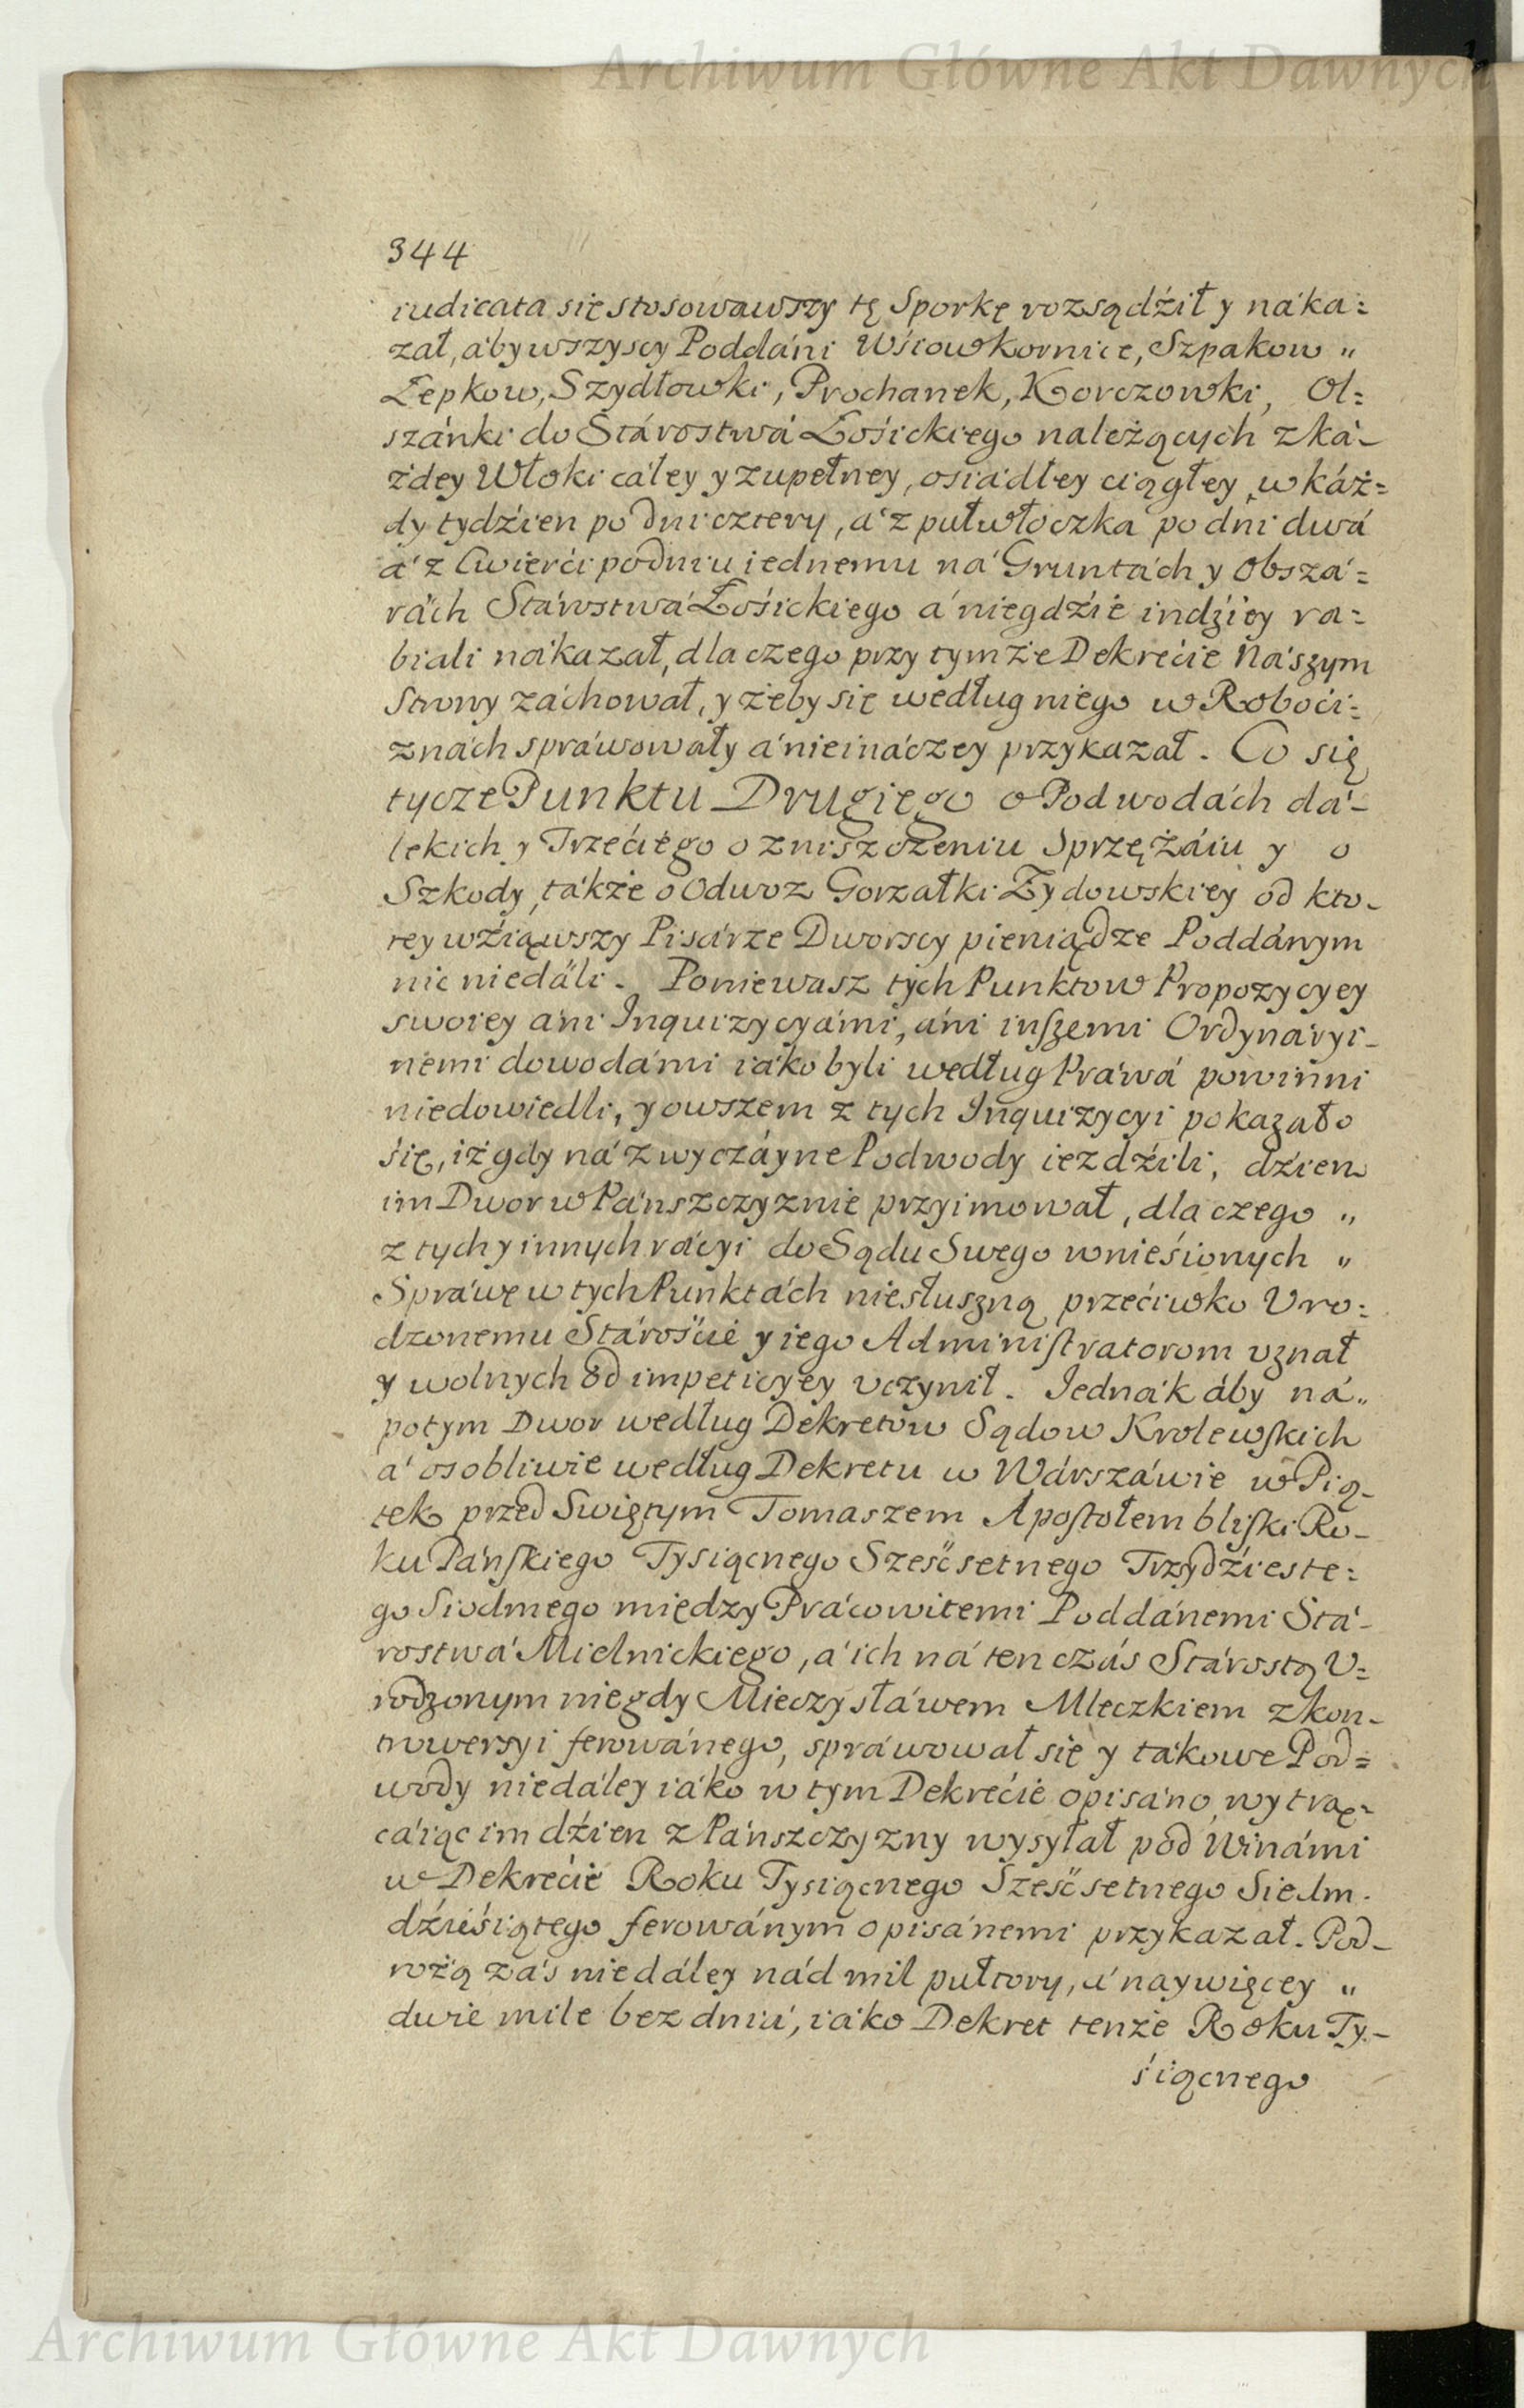 Archiwum Główne Akt Dawnych
344
iudicata się stosowawszy tę Sporkę rozsądźił y náka:
zał, áby wszyscy Poddáni Wśiow Kornice, Szpakow „
Łepkow, Szydłowki, Prochanek, Korczowki, Ol:
szánki do Stárostwá Łośickiego należących z ká-
żdey Włoki cáłey y zupełney, osiádłey ciągłey, w káż=
dy tydźien po dni cztery, á z pułwłoczka po dni dwá
á z Cwierći po dniu iednemu ná Gruntách y Obszá=
rách Stárostwá Łośickiego á niegdźie indźiey ra=
biali nákazał, dla czego przy tymże Dekrećie Nászym
Strony záchował, y żeby się według niego w Roboći:
znách spráwowáły á nieináczey przykazał. Co się
tycze Punktu Drugiego o Podwodách dá-
lekich y Trzećiego o zniszczeniu Sprzężáiu y o
Szkody, tákże o Odwoz Gorzałki Żydowskiey od kto-
rey wźiąwszy Pisárze Dworscy pieniądze Poddánym
nic niedáli. Poniewasz tych Punktow Propozycyey
swoiey áni Inquizycyámi, áni inszemi Ordynáryi-
nemi dowodámi iáko byli według Práwá powinni
niedowiedli, y owszem z tych Inquizycyi pokazáło
śię, iż gdy ná zwyczáyne Podwody iezdźili, dźien
im Dwor w Pánszczyznie przyimował, dla czego „
z tych y innych rácyi do Sądu Swego wnieśionych „
Spráwę w tych Punktách niesłuszną przećiwko Vro:
dzonemu Stárośćie y iego Administratorom vznał
y wolnych od impeticyey vczynił. Iednák áby ná„
potym Dwor według Dekretow Sądow Krolewskich
á osobliwie według Dekretu w Wárszáwie w Pią-
tek przed Swiętym Tomaszem Apostołem bliski Ro-
ku Páńskiego Tysiącnego Sześćsetnego Trzydźieste:
go Siodmego między Prácowitemi Poddánemi Stá-
rostwá Mielnickiego, á ich ná ten czás Stárostą V:
rodzonym niegdy Mieczysłáwem Mleczkiem z kon-
trowersyi ferowánego, spráwował się y tákowe Pod=
wody niedáley iáko w tym Dekrećie opisáno, wytrą-
cáiąc im dźien z Pánszczyzny wysyłał pod Winámi
w Dekrećie Roku Tysiącnego Sześćsetnego Siedm.
dźieśiątego ferowánym opisánemi przykazał. Pod-
rożą zás niedáley nád mil pułtory, á naywięcey „
dwie mile bez dniá, iáko Dekret tenże Roku Ty-
śiącnego
Archiwum Główne Akt Dawnych